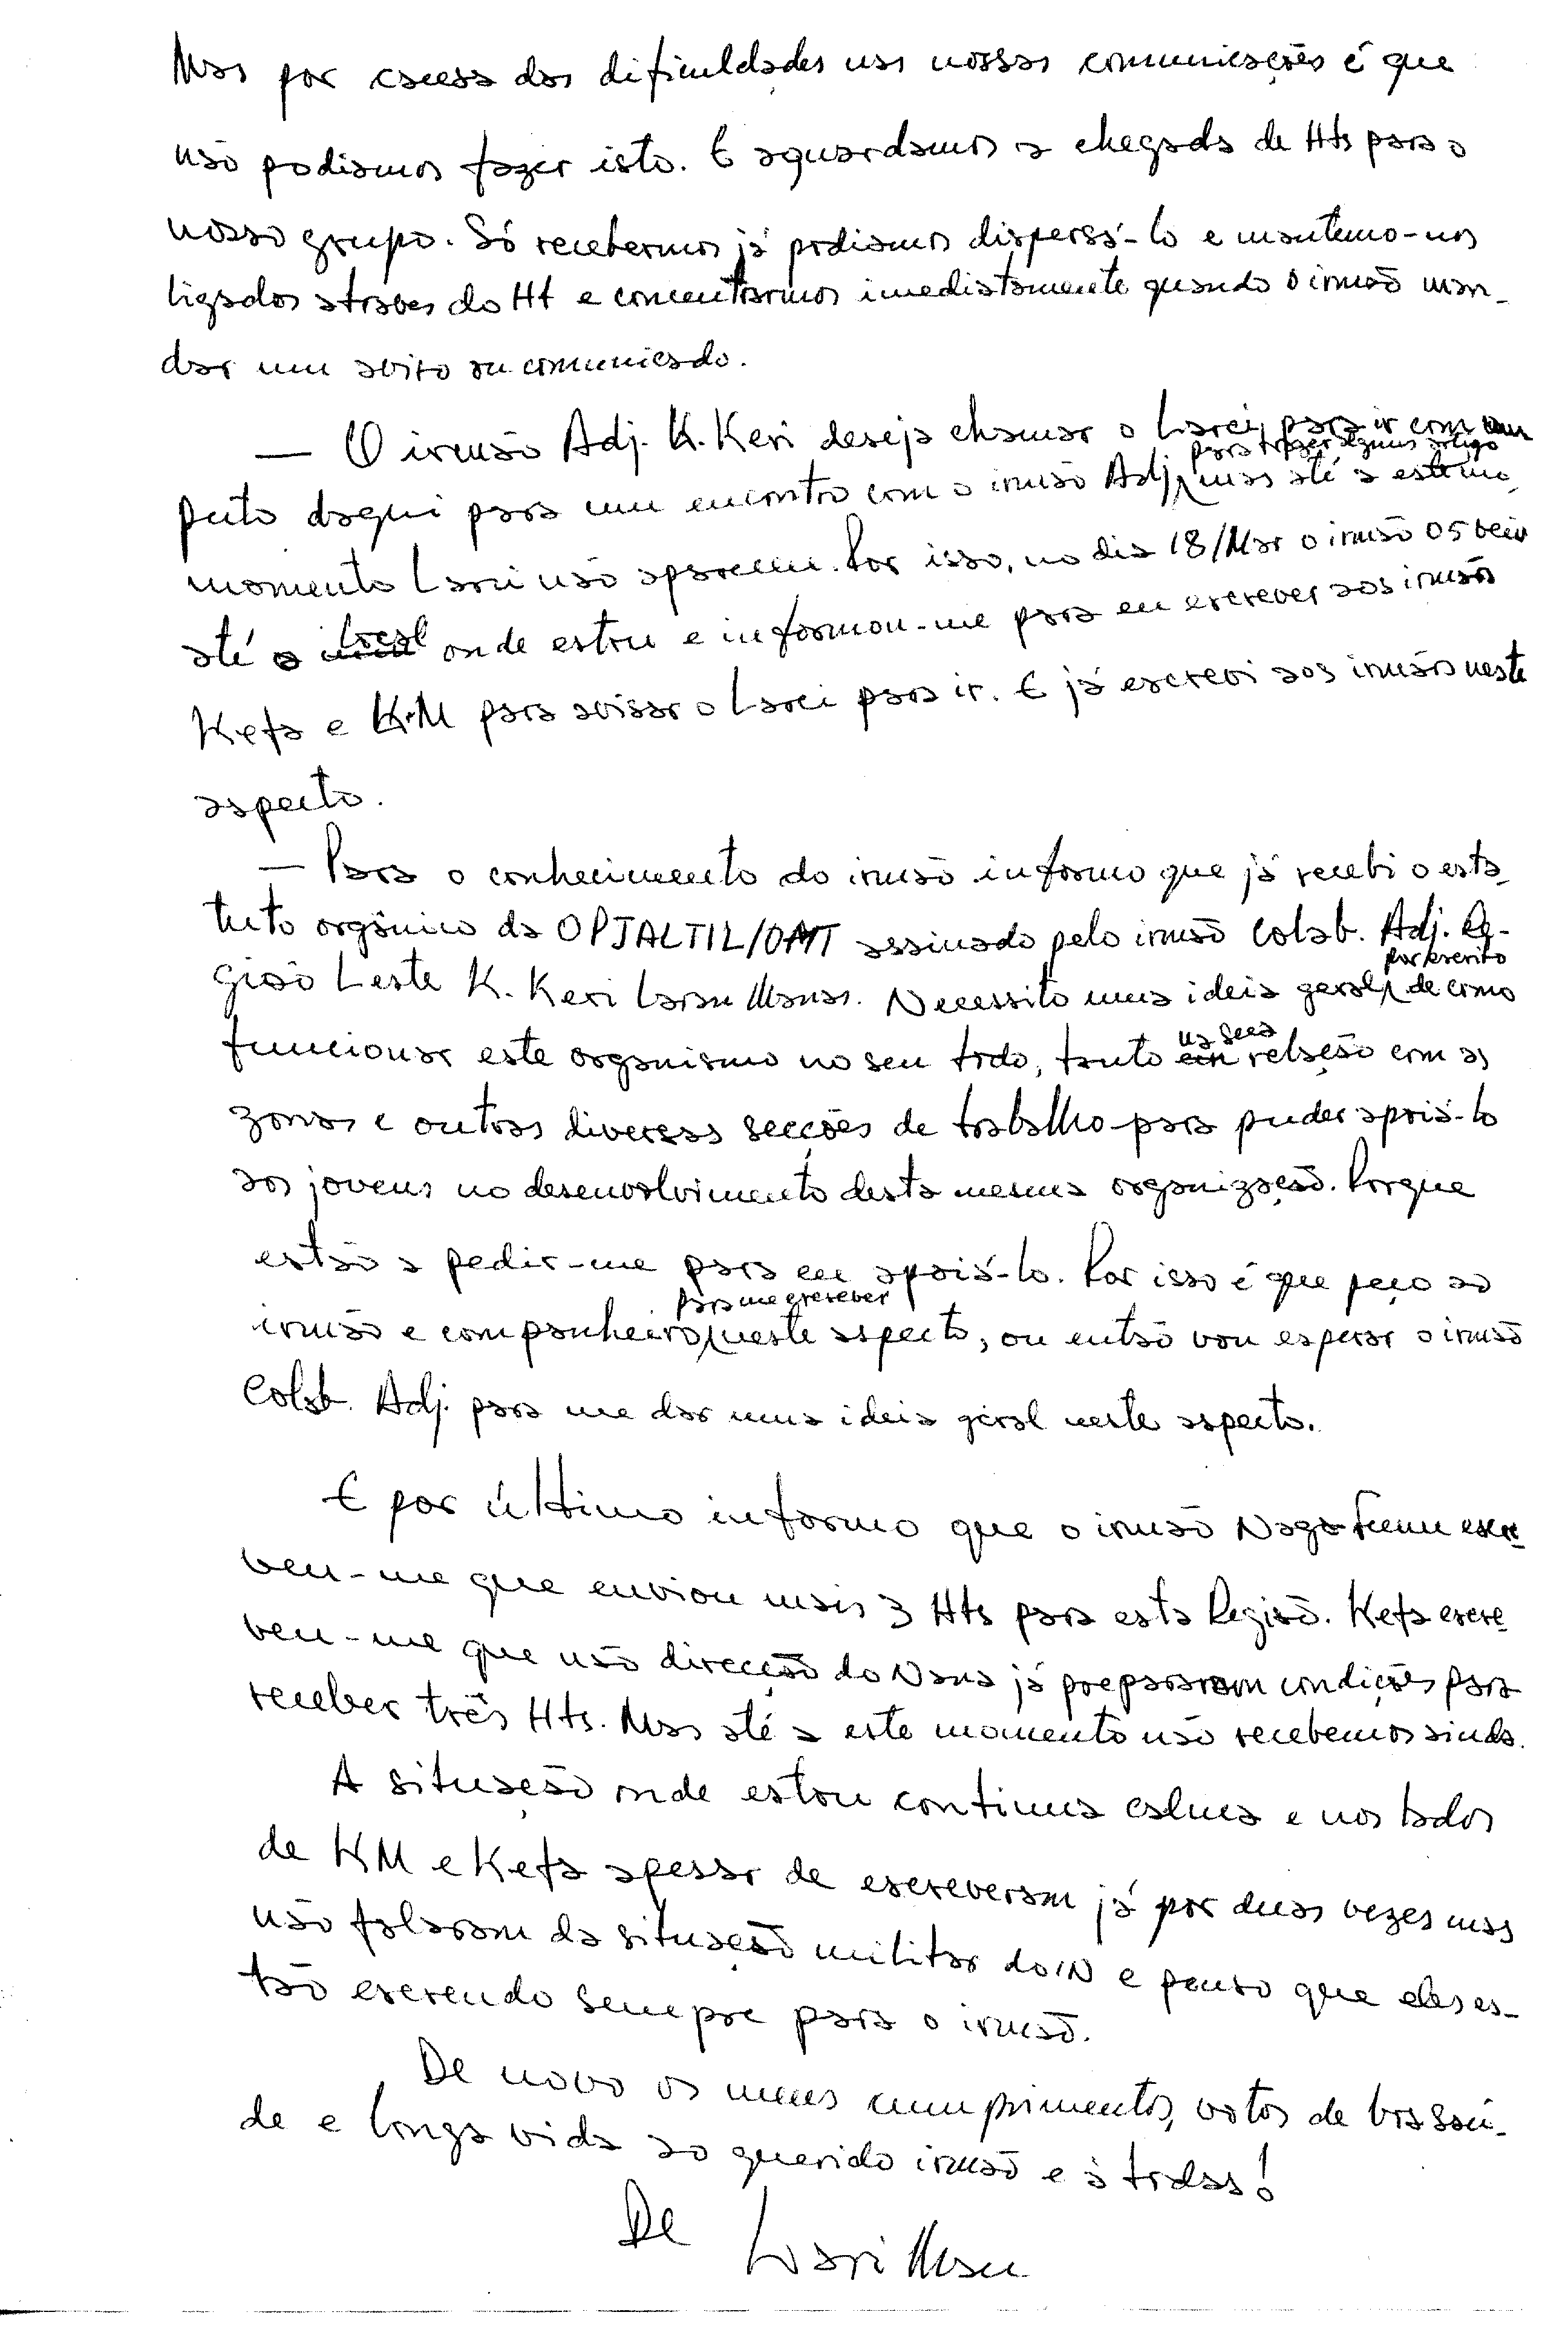 Mas por causa das dificuldades nas nossas comunicações é que
não podiamos fazer isto. E aguardamos a chegada de Hts para o
nosso grupo. Só recebermos já podiamos dispersá-lo e mantemo-nos
ligados atraves do Ht e concentrarmos imediatamente quando o irmão man-
dar um aviso ou comunicado.
— O irmão Adj. K. Keri deseja chamar o Larei, para ir com um
para trazer alguns artigo
puto daqui para um encontro com o irmão Adj, mas até a este
momento Larei não apareceu. Por isso, no dia 18/Mar o irmão 05 veio
até o local onde estou e informou-me para eu escrever aos irmãos
Kefa e K.M para avisar o Larei para ir. E já escrevi aos irmãos neste
aspecto.
— Para o conhecimento do irmão informo que já recebi o esta-
tuto orgânico da OPJALTIL/OMT assinado pelo irmão Colab. Adj. Re-
por escrito
gião Leste K. Keri Laran Manas. Necessito uma ideia geral, de como
na sua
funcionar este organismo no seu todo, tanto em relação com as
zonas e outras diversas secções de trabalho para puder apoiá-lo
aos jovens no desenvolvimento desta mesma organização. Porque
estão a pedir-me para eu apoiá-lo. Por isso é que peço ao
para me escrever
irmão e companheiro, neste aspecto, ou então vou esperar o irmão
Colab. Adj. para me dar uma ideia geral neste aspecto.
E por último informo que o irmão escre-
veu-me que enviou mais 3 Hts para esta Região. Kefa escre-
veu-me que não direcção do Nana já prepararam condições para
receber três Hts. Mas até a este momento não recebemos ainda.
A situação onde estou continua calma e nos lados
de KM e Kefa apesar de escreveram já por duas vezes mas
não falaram da situação militar do IN e penso que eles es-
tão escrendo sempre para o irmão.
De novo os meus cumprimentos, votos de boa saú-
de e longa vida ao querido irmão e à todas!
De